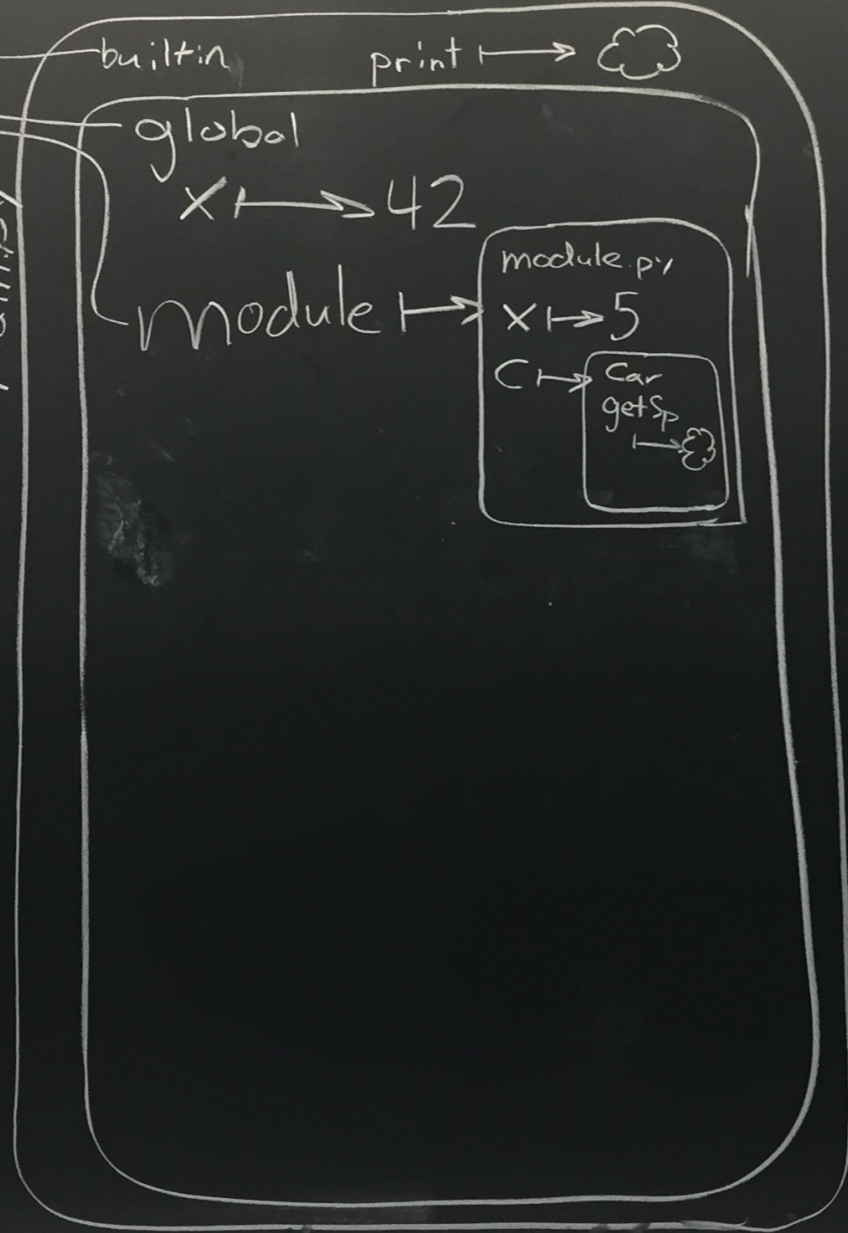 builtin print
global
x 42
module
module.py
x 5
C Car
getSp